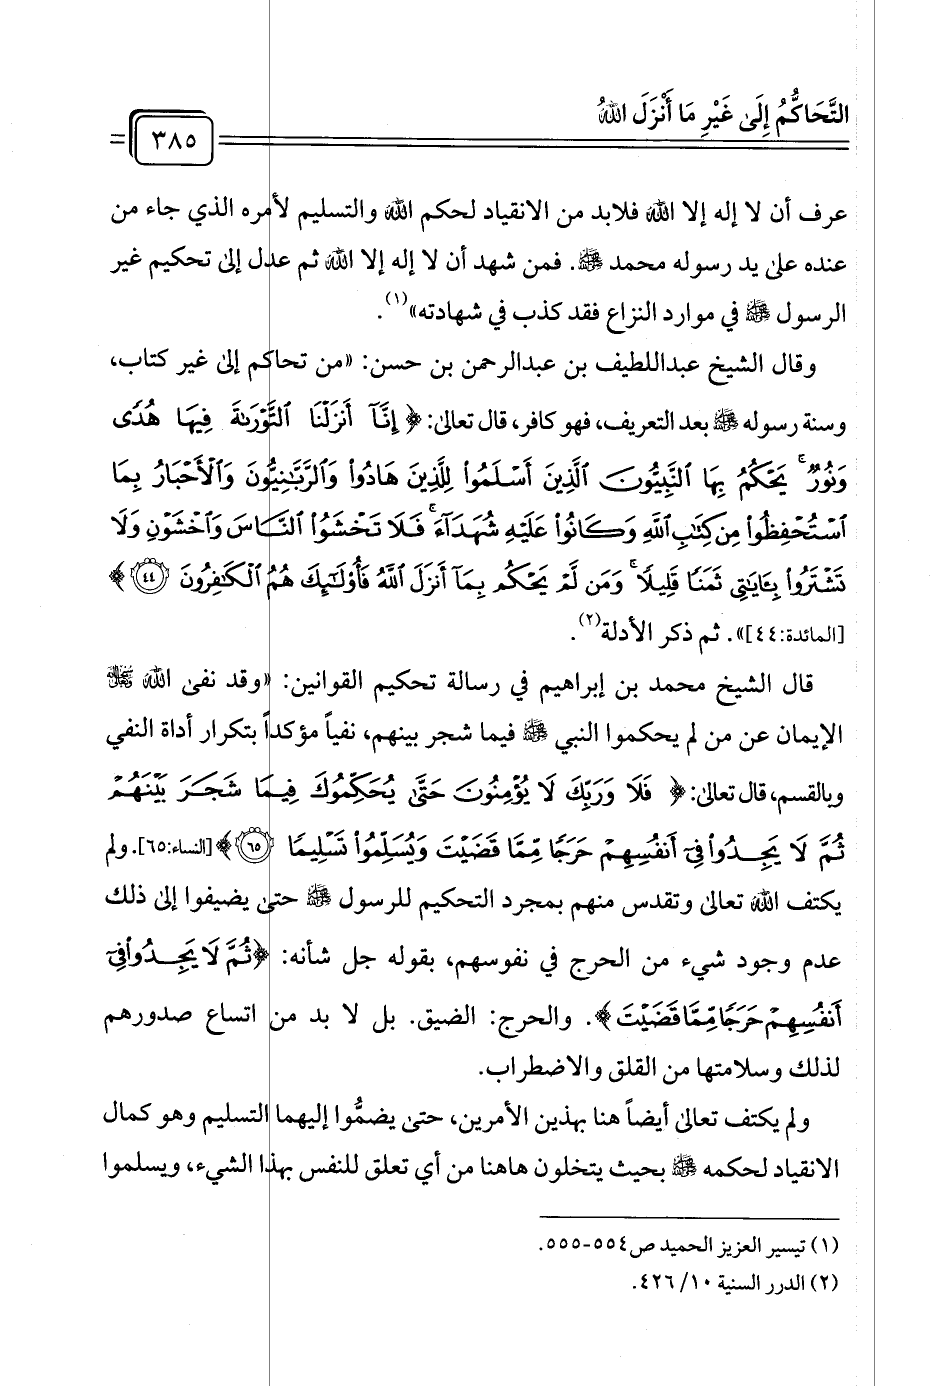 التَّحَاكُمُ إِلَىٰ غَيْرِ مَا أَنْزَلَ اللهُ
٣٨٥
عرف أن لا إله إلا الله فلابد من الانقياد لحكم الله والتسليم لأمره الذي جاء من
عنده على يد رسوله محمد ﷺ. فمن شهد أن لا إله إلا الله ثم عدل إلى تحكيم غير
الرسول ﷺ في موارد النزاع فقد كذب في شهادته»(١).
وقال الشيخ عبداللطيف بن عبدالرحمن بن حسن: «من تحاكم إلى غير كتاب،
وسنة رسوله ﷺ بعد التعريف، فهو كافر، قال تعالى: ﴿ إِنَّآ أَنزَلْنَا ٱلتَّوْرَىٰةَ فِيهَا هُدًى
وَنُورٌ ۚ يَحْكُمُ بِهَا ٱلنَّبِيُّونَ ٱلَّذِينَ أَسْلَمُوا۟ لِلَّذِينَ هَادُوا۟ وَٱلرَّبَّـٰنِيُّونَ وَٱلْأَحْبَارُ بِمَا
ٱسْتُحْفِظُوا۟ مِن كِتَـٰبِ ٱللَّهِ وَكَانُوا۟ عَلَيْهِ شُهَدَآءَ ۚ فَلَا تَخْشَوُا۟ ٱلنَّاسَ وَٱخْشَوْنِ وَلَا
تَشْتَرُوا۟ بِـَٔايَـٰتِى ثَمَنًا قَلِيلًا ۚ وَمَن لَّمْ يَحْكُم بِمَآ أَنزَلَ ٱللَّهُ فَأُو۟لَـٰٓئِكَ هُمُ ٱلْكَـٰفِرُونَ ٤٤ ﴾
[المائدة:٤٤]». ثم ذكر الأدلة(٢).
قال الشيخ محمد بن إبراهيم في رسالة تحكيم القوانين: «وقد نفى الله ﷻ
الإيمان عن من لم يحكموا النبي ﷺ فيما شجر بينهم، نفياً مؤكداً بتكرار أداة النفي
وبالقسم، قال تعالى: ﴿ فَلَا وَرَبِّكَ لَا يُؤْمِنُونَ حَتَّىٰ يُحَكِّمُوكَ فِيمَا شَجَرَ بَيْنَهُمْ
ثُمَّ لَا يَجِدُوا۟ فِىٓ أَنفُسِهِمْ حَرَجًا مِّمَّا قَضَيْتَ وَيُسَلِّمُوا۟ تَسْلِيمًا ٦٥ ﴾ [النساء:٦٥]. ولم
يكتف الله تعالى وتقدس منهم بمجرد التحكيم للرسول ﷺ حتى يضيفوا إلى ذلك
عدم وجود شيء من الحرج في نفوسهم، بقوله جل شأنه: ﴿ثُمَّ لَا يَجِدُوا۟ فِىٓ
أَنفُسِهِمْ حَرَجًا مِّمَّا قَضَيْتَ﴾. والحرج: الضيق. بل لا بد من اتساع صدورهم
لذلك وسلامتها من القلق والاضطراب.
ولم يكتف تعالى أيضاً هنا بهذين الأمرين، حتى يضمُّوا إليهما التسليم وهو كمال
الانقياد لحكمه ﷺ بحيث يتخلون هاهنا من أي تعلق للنفس بهذا الشيء، ويسلموا
(١) تيسير العزيز الحميد ص٥٥٤-٥٥٥.
(٢) الدرر السنية ١٠/ ٤٢٦.